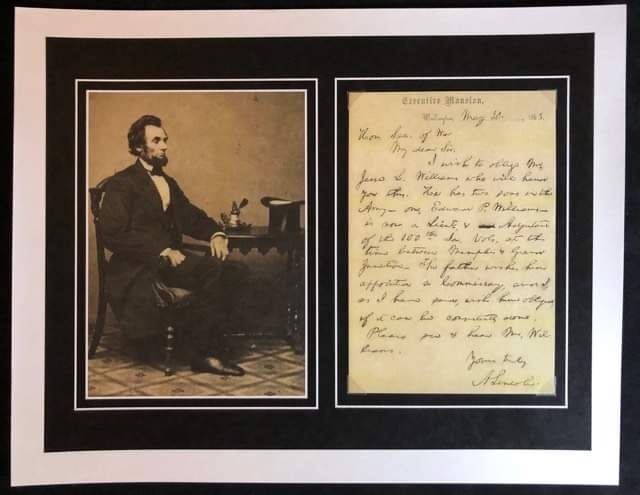 Executive Mansion,
Washington, May 26, 1863.
Hon. Sec. of War
My dear Sir:
I wish to oblige Mr.
Jesse L. Williams who will hand
you this. He has two sons in the
Army— one, Edward P. Williams
is now a Lieut. & Adjutant
of the 100th In. Vols. at this
time between Memphis & Grand
Junction. The father wishes him
appointed a Commissary, and
as I have said, wish him obliged
if it can be consistently done.
Please see & hear Mr. Wil
liams.
Yours truly
A. Lincoln.